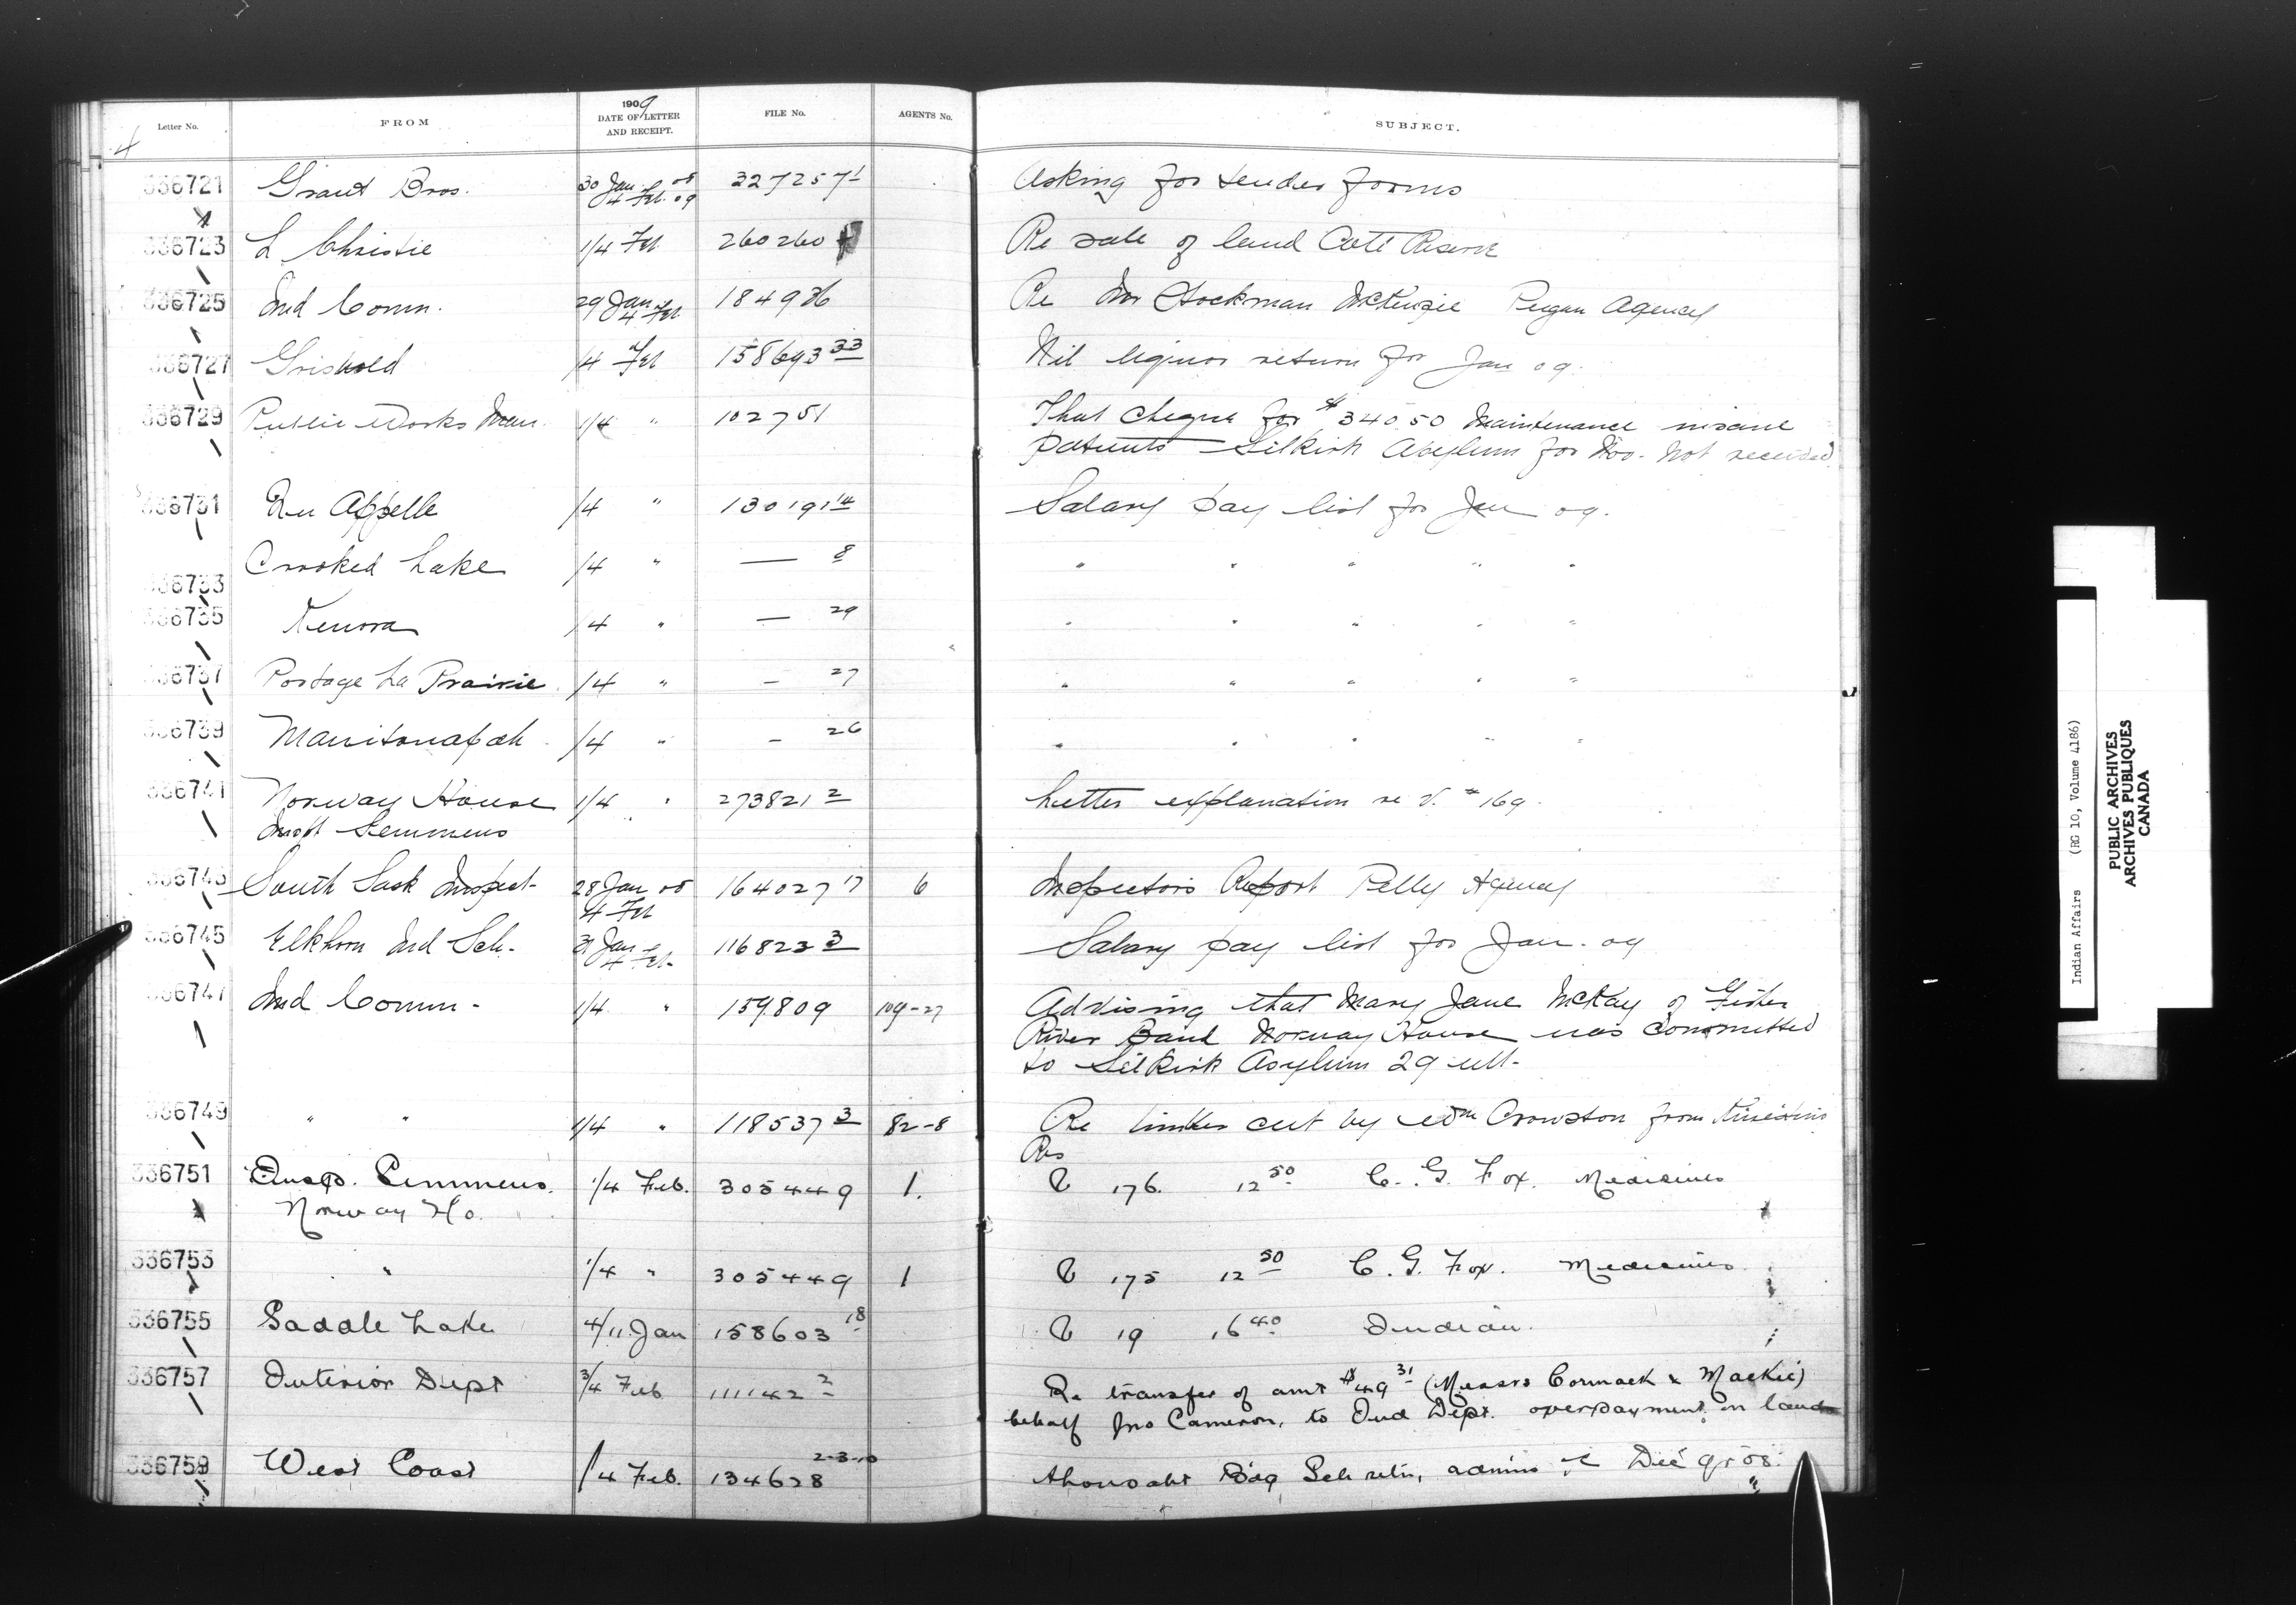 4
Letter No. FROM 1909 DATE OF LETTER AND RECEIPT. FILE No. AGENTS No. SUBJECT.
336721 Grant Bros. 30 Jan 08 4 Feb. 09 327257 1 Asking for tender forms
336723 L Christie 1/4 Feb 260260 Re sale of land Coté Reserve
336725 Ind Comm. 29 Jan 4 Feb. 184936 Re Stockman McKenzie Peigan Agency
336727 Griswold /4 Feb 158693 33 Nil liquor return for Jan 09.
336729 Public Works Man. 1/4 " 102751 That cheque for $340.50 Maintenance insane
patients Selkirk Asylum for Nov. not received
336731 Qu Appelle /4 " 130191 14 Salary pay list for Jan 09.
336733 Crooked Lake /4 " — 8 " " " " "
336735 Kenora /4 " — 29 " " " " "
336737 Portage La Prairie /4 " — 27 " " " " "
336739 Manitowapah /4 " — 26 " " " " "
336741 Norway House 1/4 " 273821 2 Letter explanation re V. # 169.
Inspt Semmens
336743 South Sask Inspect- 28 Jan 08 4 Feb 164027 17 6 Inspectors Report Pelly Agency
336745 Elkhorn Ind Sch. 31 Jan 4 Feb. 116823 3 Salary pay list for Jan. 09
336747 Ind Comm - 1/4 " 159809 109-27 Advising that Mary Jane McKay of Fisher
River Band Norway House was committed
to Selkirk Asylum 29 ult-
336749 " " 1/4 " 118537 3 82-8 Re timber cut by Wm Crowston from
Res
336751 Insp. Semmens. 1/4 Feb. 305449 1. V 176. 12 50 C. G. Fox. Medicines
Norway Ho.
336753 " 1/4 " 305449 1 V 175 12 50 C. G. Fox. Medicines
336755 Saddle Lake 4/11 Jan 158603 18 V 19 16 40 Indian.
336757 Interior Dept 3/4 Feb 111142 2 Re transfer of amt $49 31 (Messrs Cormack & Mackie)
behalf Jno Cameron, to Ind Dept. overpayment on land
336759 West Coast /4 Feb. 134628 2-3-10 Ahousaht Bdg Sch retn, admins &c Dec qr 08.
"
Indian Affairs (RG 10, Volume 4186)
PUBLIC ARCHIVES
ARCHIVES PUBLIQUES
CANADA